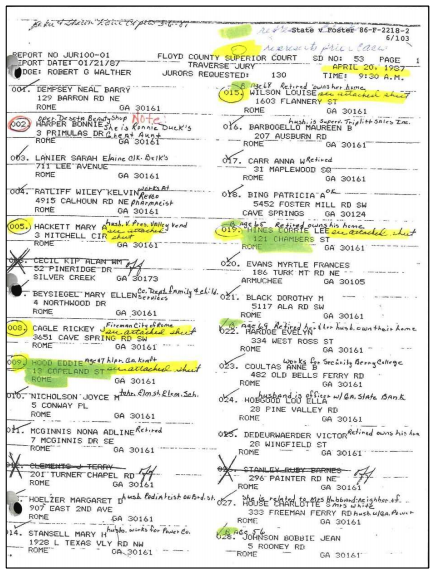 State v Foster 86-F-2218-2
6/103
represents prior Case
REPORT NO JUR100-01 FLOYD COUNTY SUPERIOR COURT SD NO: 53 PAGE 1
REPORT DATE: 01/21/87 TRAVERSE JURY APRIL 20, 1987
JUDGE: ROBERT G WALTHER JURORS REQUESTED: 130 TIME: 9:30 A.M.
001. DEMPSEY NEAL BARRY
129 BARRON RD NE
ROME GA 30161
Note
002. HARPER BONNIE J She is Ronnie Duck's
3 PRIMULAS DR Great Aunt
ROME GA 30161
003. LANIER SARAH Elaine Clk. Belk's
711 LEE AVENUE
ROME GA 30161
004. RATLIFF WILEY KELVIN works at
4915 CALHOUN RD NE pharmacist
ROME GA 30161
005. HACKETT MARY A hush. V. Pres. Valley Vend
3 MITCHELL CIR see attached sheet
ROME GA 30161
006. CECIL KIP ALAN
52 PINERIDGE DR
SILVER CREEK GA 30173
BEYSIEGEL MARY ELLEN Co. Dept. Family & Child. Services
4 NORTHWOOD DR
ROME GA 30161
008. CAGLE RICKEY J Fireman City of Rome
3651 CAVE SPRING RD SW see attached sheet
ROME GA 30161
009. HOOD EDDIE age 47
13 COPELAND ST see attached sheet
ROME GA 30161
010. NICHOLSON JOYCE M Elm St. Elem. Sch.
5 CONWAY PL
ROME GA 30161
011. MCGINNIS NONA ADLINE Retired
7 MCGINNIS DR SE
ROME GA 30161
012. CLEMENTS J TERRY
201 TURNER CHAPEL RD
ROME GA 30161
013. HOELZER MARGARET D hush. Pediatrist on Broad St.
907 EAST 2ND AVE
ROME GA 30161
014. STANSELL MARY H works for Power Co.
1928 L TEXAS VLY RD NW
ROME GA 30161
B age 69 Retired owns her home
015. WILSON LOUISE see attached sheet
1603 FLANNERY ST
ROME GA 30161
hush. is Superv. Triplitt Sales Inc.
016. BARBOGELLO MAUREEN B
207 AUSBURN RD
ROME GA 30161
017. CARR ANNA W Retired
31 MAPLEWOOD SW
ROME GA 30161
018. BING PATRICIA A OK
5452 FOSTER MILL RD SW
CAVE SPRINGS GA 30124
B age 65 Retired owns his home
019. HINES CORRIE LEE see attached sheet
121 CHAMBERS ST
ROME GA 30161
020. EVANS MYRTLE FRANCES
186 TURK MT RD NE
ARMUCHEE GA 30105
021. BLACK DOROTHY M
5117 ALA RD SW
ROME GA 30161
B age 69 Retired her & her hush. own their home
022. HARDGE EVELYN
334 WEST ROSS ST
ROME GA 30161
works for Security Berry College
023. COULTAS ANNE B
482 OLD BELLS FERRY RD
ROME GA 30161
husband is officer w/ GA. State Bank
024. HOBGOOD LOU ELLA
28 PINE VALLEY RD
ROME GA 30161
025. DEDEURWAERDER VICTOR Retired owns his hon
28 WINGFIELD ST
ROME GA 30161
026. STANLEY RUBY BARNES
296 PAINTER RD NE
ROME GA 30161
She is related to Mrs Hubbard neighbor of
027. HOUSE CHARLOTTE S Mrs White
333 FREEMAN FERRY RD hush. w/ GA. Power
ROME GA 30161
B age 56
028. JOHNSON BOBBIE JEAN
5 ROONEY RD
ROME GA 30161